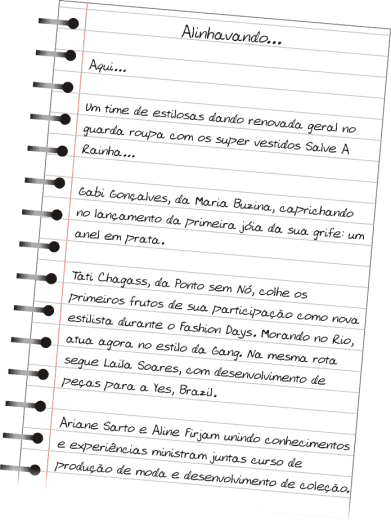 Alinhavando...
Aqui...
Um time de estilosas dando renovada geral no
guarda roupa com os super vestidos Salve A
Rainha...
Gabi Gonçalves, da Maria Buzina, caprichando
no lançamento da primeira jóia da sua grife: um
anel em prata.
Tati Chagass, da Ponto sem Nó, colhe os
primeiros frutos de sua participação como nova
estilista durante o Fashion Days. Morando no Rio,
atua agora no estilo da Gang. Na mesma rota
segue Laila Soares, com desenvolvimento de
peças para a Yes, Brazil.
Ariane Sarto e Aline Firjam unindo conhecimentos
e experiências ministram juntas curso de
produção de moda e desenvolvimento de coleção.